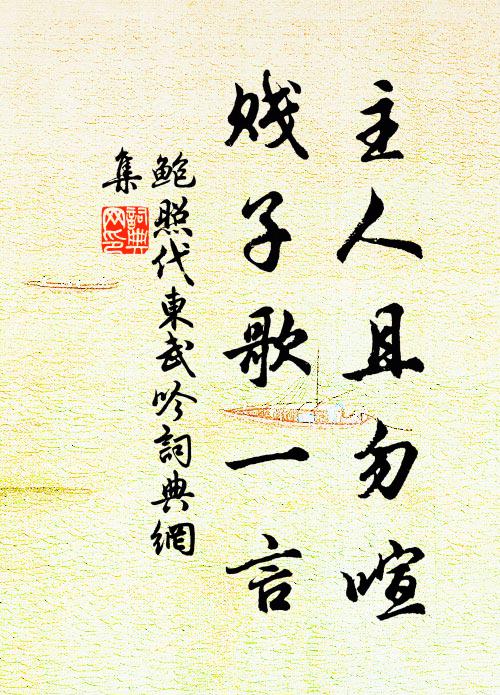 主人且勿喧
贱子歌一言
鲍照代東武吟詞典網
集
詞典
网印